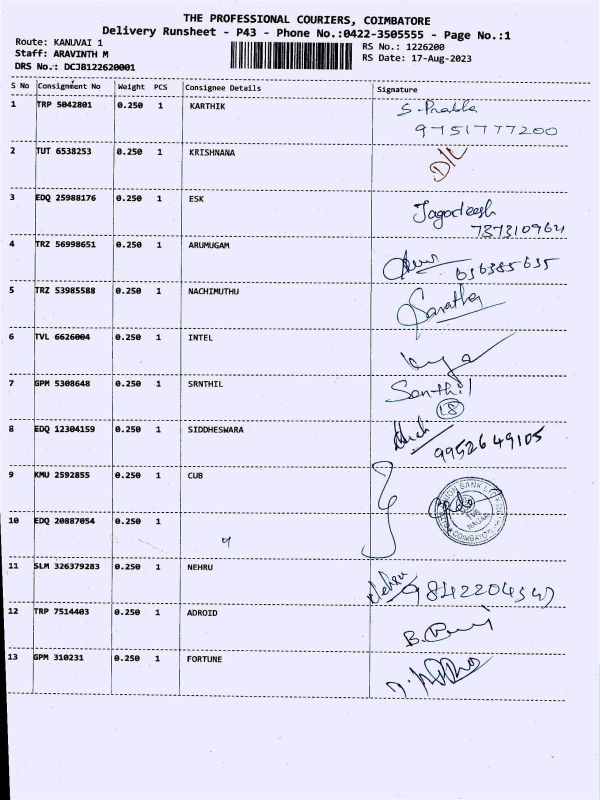 THE PROFESSIONAL COURIERS, COIMBATORE
Delivery Runsheet - P43 - Phone No.:0422-3505555 - Page No.:1
Route: KANUVAI 1
Staff: ARAVINTH M
DRS No.: DCJB122620001
RS No.: 1226200
RS Date: 17-Aug-2023
S No Consignment No Weight PCS Consignee Details Signature
1 TRP 5042801 0.250 1 KARTHIK S. Prabha
9751777200
2 TUT 6538253 0.250 1 KRISHNANA D/L
3 EDQ 25988176 0.250 1 ESK Jagadeesh
737310964
4 TRZ 56998651 0.250 1 ARUMUGAM
636385635
5 TRZ 53985588 0.250 1 NACHIMUTHU
6 TVL 6626004 0.250 1 INTEL
7 GPM 5308648 0.250 1 SRNTHIL Senthil
18
8 EDQ 12304159 0.250 1 SIDDHESWARA
9952649105
9 KMU 2592855 0.250 1 CUB
10 EDQ 20887054 0.250 1
COIMBATORE
11 SLM 326379283 0.250 1 NEHRU Nehru
12 TRP 7514403 0.250 1 ADROID
13 GPM 310231 0.250 1 FORTUNE